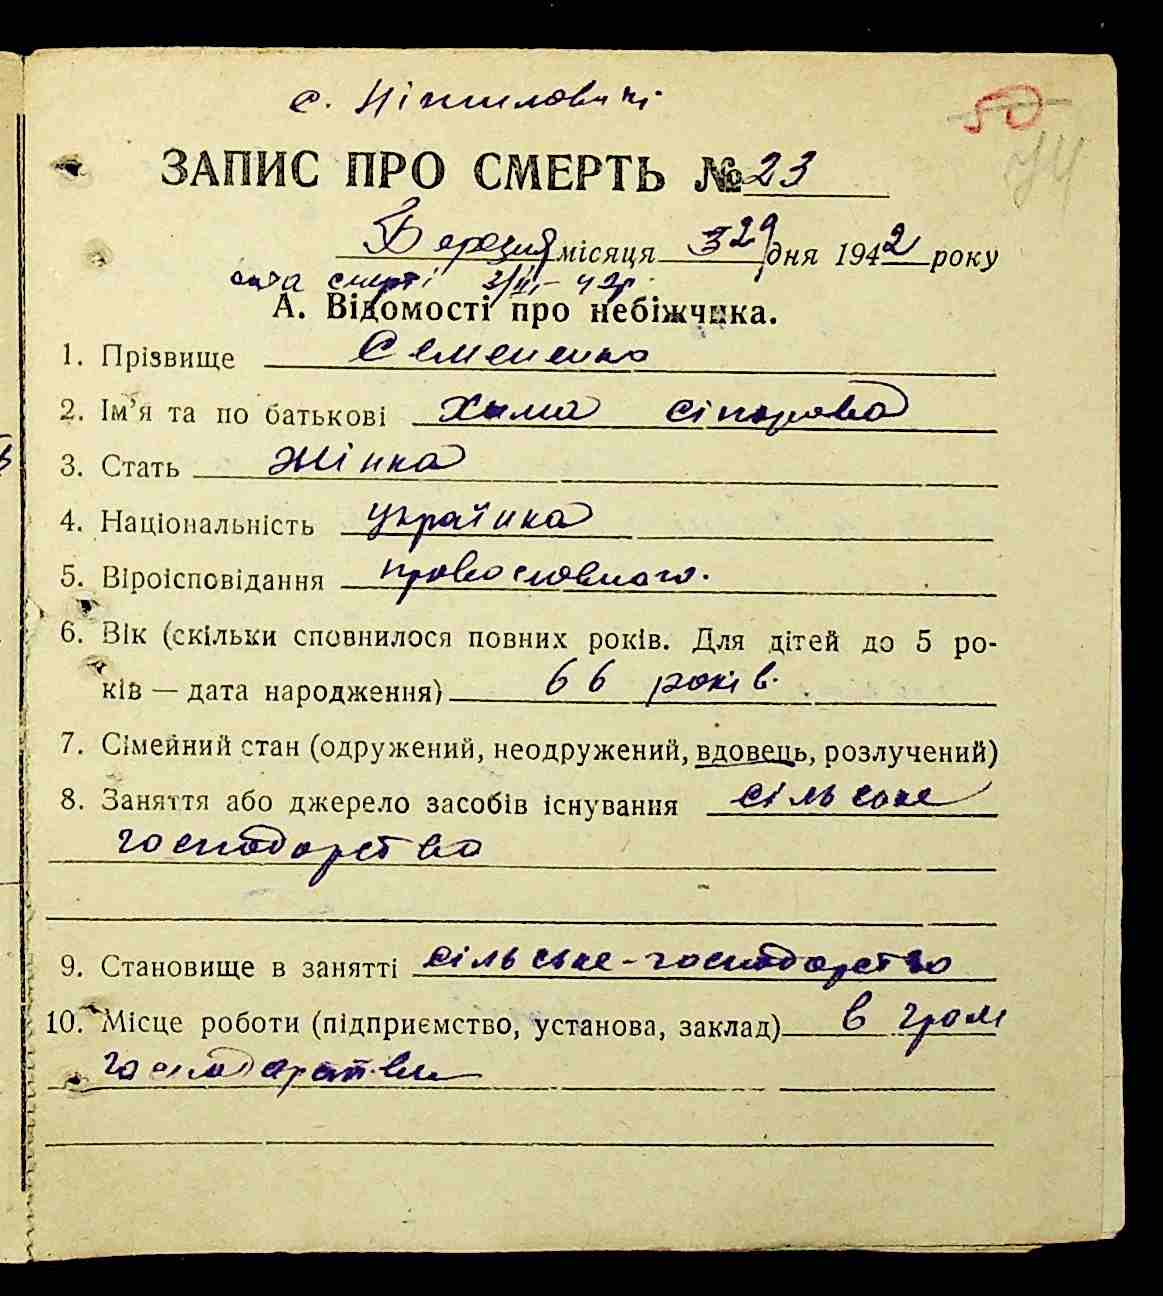 с. Ніжиловичі
50
74
ЗАПИС ПРО СМЕРТЬ № 23
Березня місяця 29 дня 1942 року
дата смерті 3/III-42р.
А. Відомості про небіжчика.
1. Прізвище Семененко
2. Ім'я та по батькові Хима
3. Стать Жінка
4. Національність українка
5. Віроісповідання провославного.
6. Вік (скільки сповнилося повних років. Для дітей до 5 ро-
ків — дата народження) 66 років.
7. Сімейний стан (одружений, неодружений, вдовець, розлучений)
8. Заняття або джерело засобів існування сільське
господарство
9. Становище в занятті сільське-господарство
10. Місце роботи (підприємство, установа, заклад) в гром
господарстві